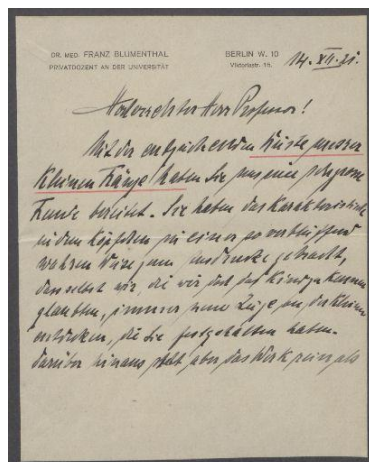 DR. MED. FRANZ BLUMENTHAL
PRIVATDOZENT AN DER UNIVERSITÄT
BERLIN W. 10
Viktoriastr. 15.
14. XII. 21.
Hochverehrter Herr Professor!
Mit der entzückenden Büste unserer
kleinen haben Sie uns eine sehr grosse
Freude bereitet. Sie haben das Karakteristische
in dem Köpfchen in einer so verblüffend
wahren Weise zum Ausdrucke gebracht,
dass selbst wir, die wir doch das Kind zu kennen
glaubten, immer neue Züge an der Kleinen
entdecken, die Sie festgehalten haben.
Darüber hinaus steht aber das Werk rein als